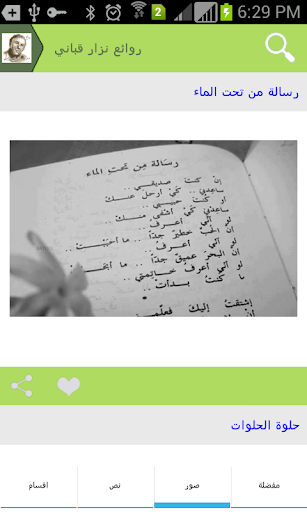 6:29 PM
روائع نزار قباني
رسالة من تحت الماء
رسَالة مِن تحتِ الماء
إن كنتَ صديقي ..
ساعدني .. كَيْ أرحل عنك
أو كنتَ حبيبي ..
ساعدني كَيْ أشفى منك ..
لو أني أعرفُ ..
أن الحبَّ خطيرٌ جدّاً .. ما أحببت ..
لو أني أعرفُ ..
أن البحرَ عميقٌ جدّاً .. ما أبحرت
لو أني أعرفُ خاتمتي ..
ما كنتُ بدأت ..
إشتقتُ إليكَ فعلّمني
حلوة الحلوات
اقسام
نص
صور
مفضلة